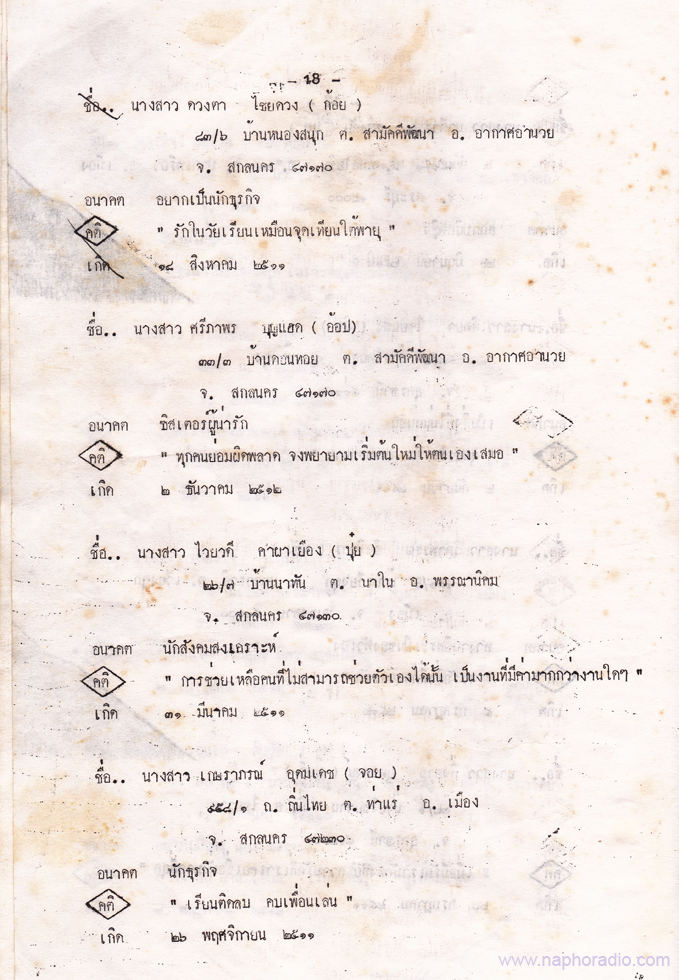 - 18 -
ชื่อ.. นางสาว ดวงตา ไชยดวง ( ก้อย )
๘๓/๖ บ้านหนองสนุก ต. สามัคคีพัฒนา อ. อากาศอำนวย
จ. สกลนคร ๔๗๑๗๐
อนาคต อยากเป็นนักธุรกิจ
คติ " รักในวัยเรียนเหมือนจุดเทียนใต้พายุ "
เกิด ๑๘ สิงหาคม ๒๕๑๑
ชื่อ.. นางสาว ศรีภาพร บุญแฮด ( อ้อป)
๓๓/๓ บ้านดอนทอย ต. สามัคคีพัฒนา อ. อากาศอำนวย
จ. สกลนคร ๔๗๑๗๐
อนาคต ซิสเตอร์ผู้น่ารัก
คติ " ทุกคนย่อมผิดพลาด จงพยายามเริ่มต้นใหม่ให้ตนเองเสมอ "
เกิด ๒ ธันวาคม ๒๕๑๒
ชื่อ.. นางสาว ไวยวดี คาผาเยือง ( ปุ๋ย )
๒๖/๗ บ้านนาทัน ต. นาใน อ. พรรณานิคม
จ. สกลนคร ๔๗๑๓๐
อนาคต นักสังคมสงเอราะห์
คติ " การช่วยเหลือคนที่ไม่สามารถช่วยตัวเองได้นั้น เป็นงานที่มีค่ามากกว่างานใดๆ "
เกิด ๓๑ มีนาคม ๒๕๑๑
ชื่อ.. นางสาว เกษราภรณ์ อุดมเดช ( จอย )
๕๕๘/๑ ถ. ถิ่นไทย ต. ท่าแร่ อ. เมือง
จ. สกลนคร ๔๗๒๓๐
อนาคต นักธุรกิจ
คติ " เรียนติดลบ คบเพื่อนเล่น "
เกิด ๒๖ พฤศจิกายน ๒๕๑๑
www.naphoradio.com